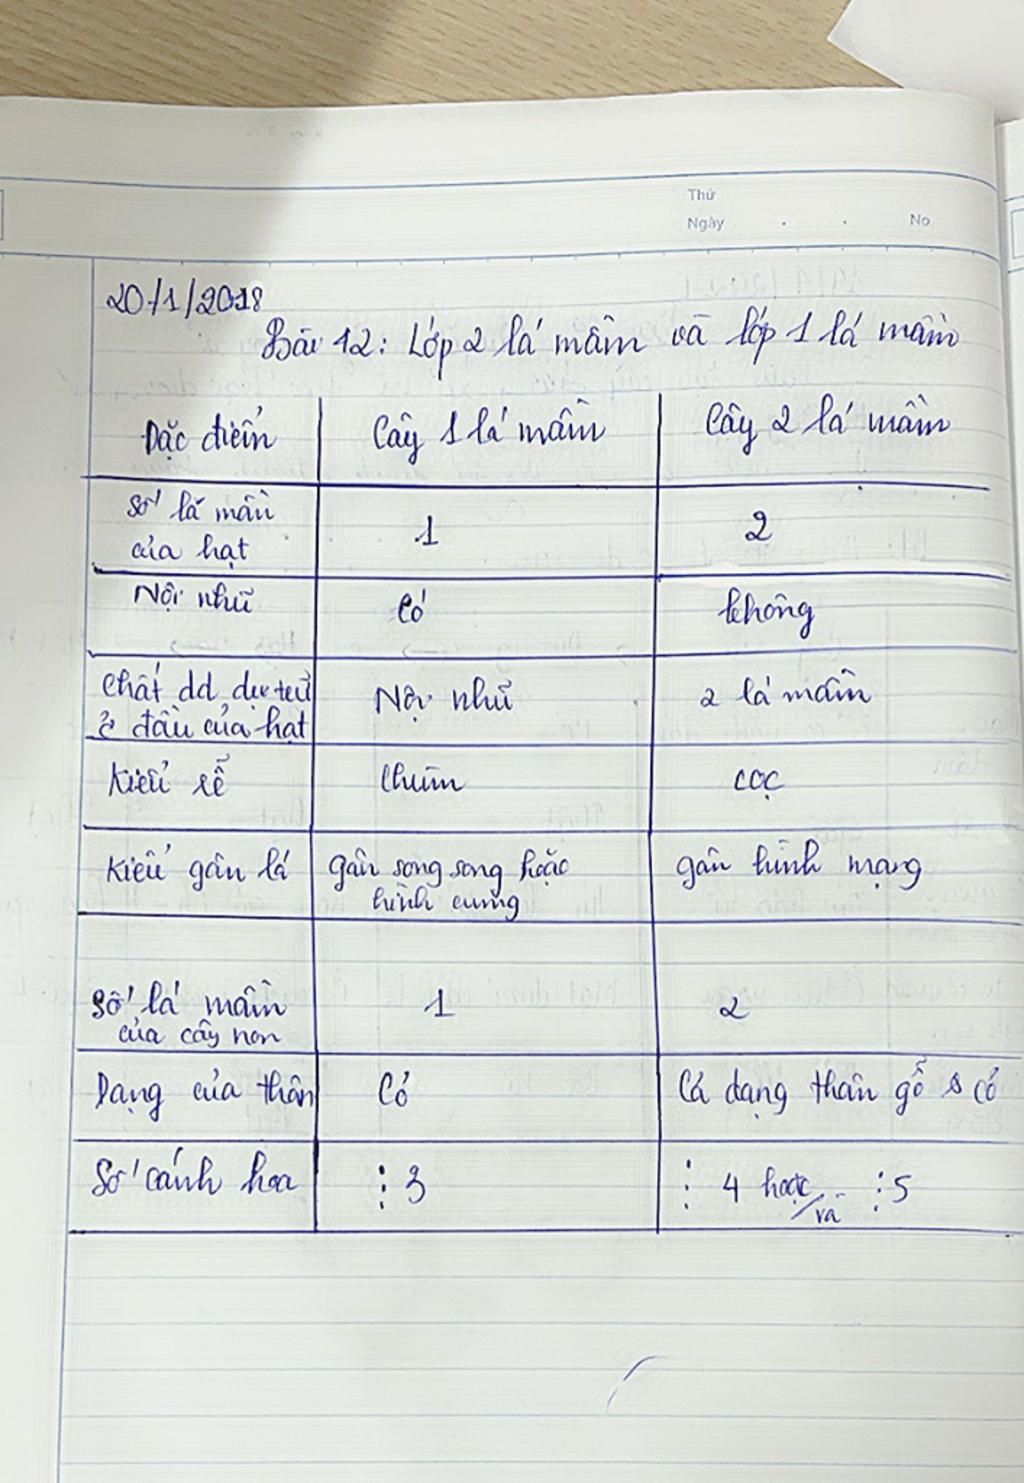 Thứ
Ngày . . No.
20/1/2018
Bài 12: Lớp 2 lá mầm và lớp 1 lá mầm
Đặc điểm Cây 1 lá mầm Cây 2 lá mầm
Số lá mầm của hạt 1 2
Nội nhũ Có không
Chất dd dự trữ ở đâu của hạt Nội nhũ 2 lá mầm
Kiểu rễ Chùm cọc
Kiểu gân lá gân song song hoặc hình cung gân hình mạng
Số lá mầm của cây non 1 2
Dạng của thân Cỏ Cả dạng thân gỗ & cỏ
Số cánh hoa ⋮ 3 ⋮ 4 hoặc/và ⋮ 5